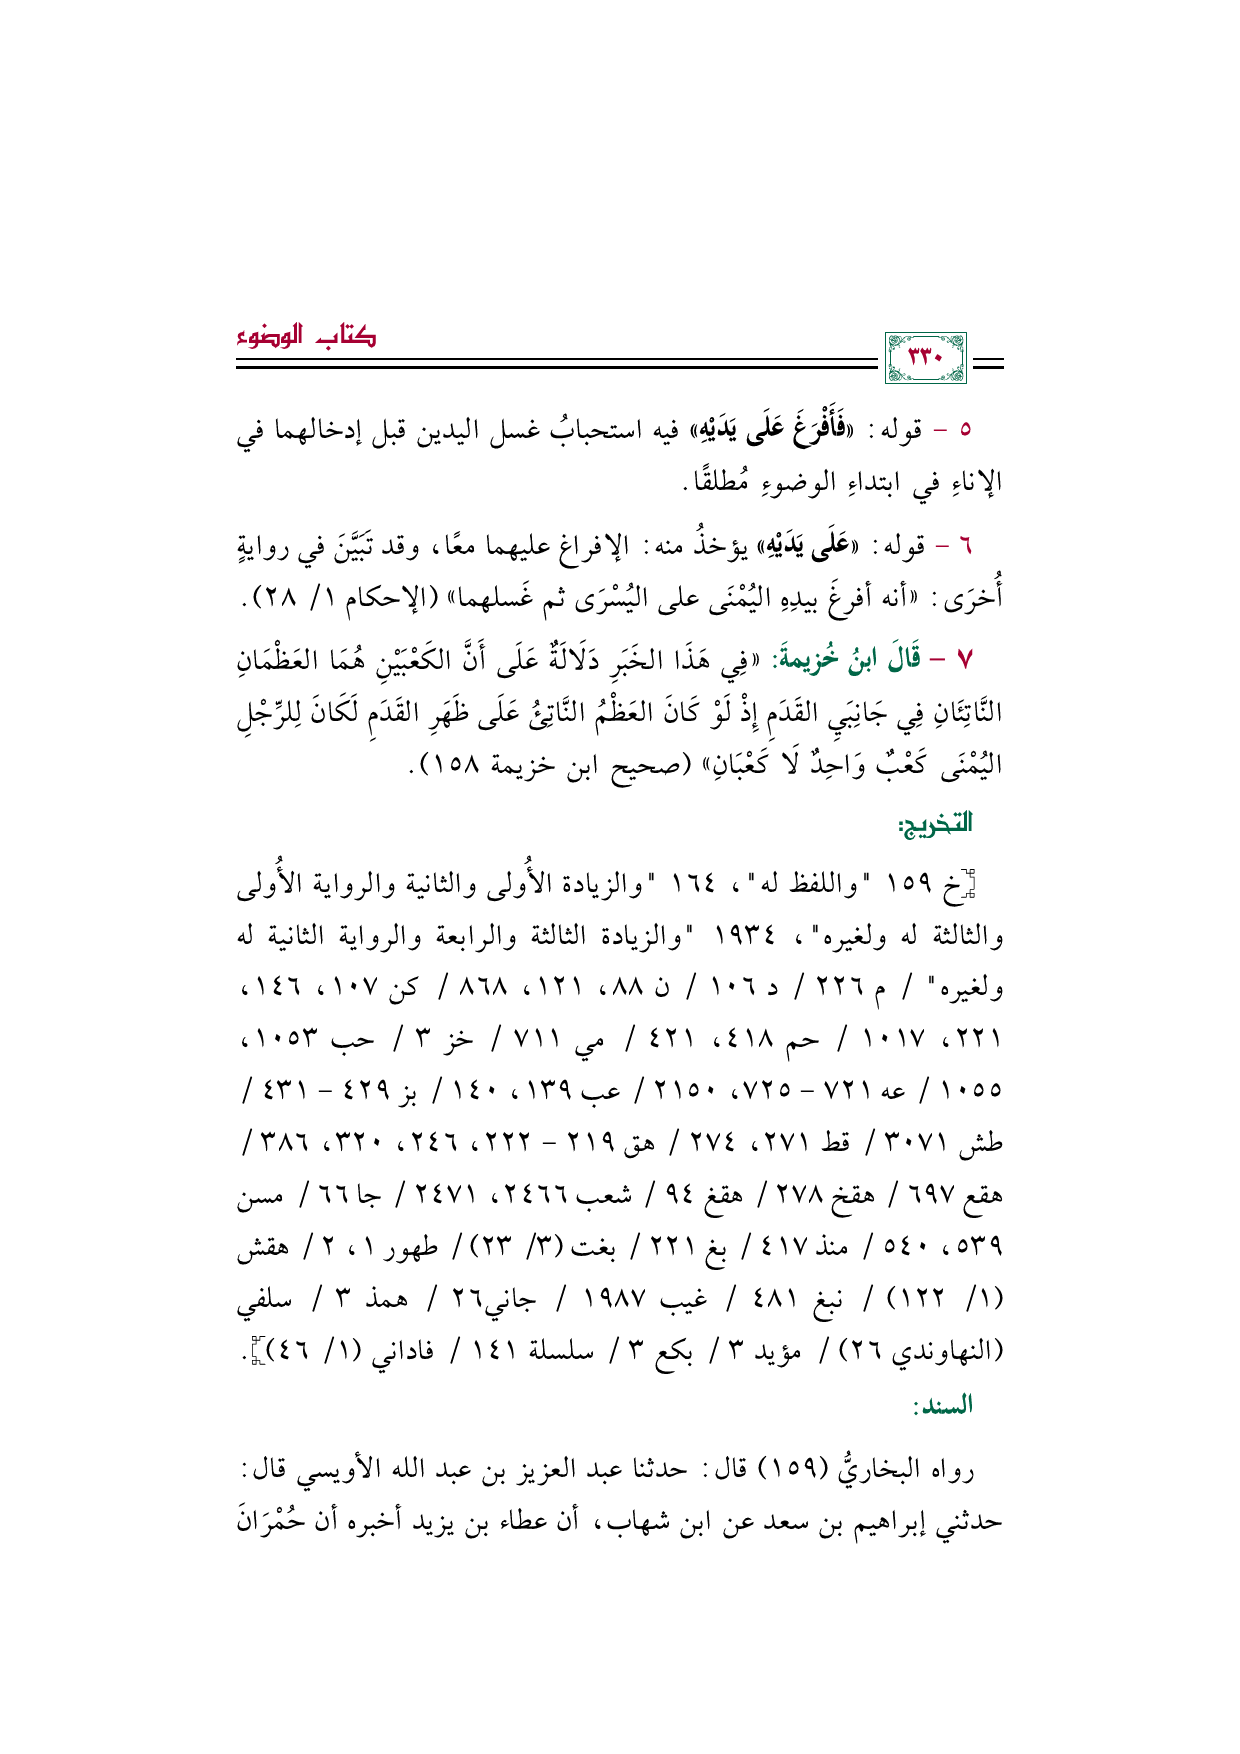 كتاب الوضوء
٣٣٠
٥ - قوله: «فَأَفْرَغَ عَلَى يَدَيْهِ» فيه استحبابُ غسل اليدين قبل إدخالهما في
الإناءِ في ابتداءِ الوضوءِ مُطلقًا.
٦ - قوله: «عَلَى يَدَيْهِ» يؤخذُ منه: الإفراغ عليهما معًا، وقد تَبَيَّنَ في روايةٍ
أُخرَى: «أنه أفرغَ بيدِهِ اليُمْنَى على اليُسْرَى ثم غَسلهما» (الإحكام ١/ ٢٨).
٧ - قَالَ ابنُ خُزيمةَ: «فِي هَذَا الخَبَرِ دَلَالَةٌ عَلَى أَنَّ الكَعْبَيْنِ هُمَا العَظْمَانِ
النَّاتِئَانِ فِي جَانِبَيِ القَدَمِ إِذْ لَوْ كَانَ العَظْمُ النَّاتِئُ عَلَى ظَهَرِ القَدَمِ لَكَانَ لِلرِّجْلِ
اليُمْنَى كَعْبٌ وَاحِدٌ لَا كَعْبَانِ» (صحيح ابن خزيمة ١٥٨).
التخريج:
[خ ١٥٩ "واللفظ له"، ١٦٤ "والزيادة الأُولى والثانية والرواية الأُولى
والثالثة له ولغيره"، ١٩٣٤ "والزيادة الثالثة والرابعة والرواية الثانية له
ولغيره" / م ٢٢٦ / د ١٠٦ / ن ٨٨، ١٢١، ٨٦٨ / كن ١٠٧، ١٤٦،
٢٢١، ١٠١٧ / حم ٤١٨، ٤٢١ / مي ٧١١ / خز ٣ / حب ١٠٥٣،
١٠٥٥ / عه ٧٢١ - ٧٢٥، ٢١٥٠ / عب ١٣٩، ١٤٠ / بز ٤٢٩ - ٤٣١ /
طش ٣٠٧١ / قط ٢٧١، ٢٧٤ / هق ٢١٩ - ٢٢٢، ٢٤٦، ٣٢٠، ٣٨٦ /
هقع ٦٩٧ / هقخ ٢٧٨ / هقغ ٩٤ / شعب ٢٤٦٦، ٢٤٧١ / جا ٦٦ / مسن
٥٣٩، ٥٤٠ / منذ ٤١٧ / بغ ٢٢١ / بغت (٣/ ٢٣) / طهور ١، ٢ / هقش
(١/ ١٢٢) / نبغ ٤٨١ / غيب ١٩٨٧ / جاني٢٦ / همذ ٣ / سلفي
(النهاوندي ٢٦) / مؤيد ٣ / بكع ٣ / سلسلة ١٤١ / فاداني (١/ ٤٦)].
السند:
رواه البخاريُّ (١٥٩) قال: حدثنا عبد العزيز بن عبد الله الأويسي قال:
حدثني إبراهيم بن سعد عن ابن شهاب، أن عطاء بن يزيد أخبره أن حُمْرَانَ